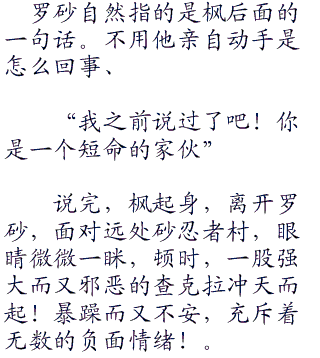 罗砂自然指的是枫后面的
一句话。不用他亲自动手是
怎么回事、
“我之前说过了吧！你
是一个短命的家伙”
说完，枫起身，离开罗
砂，面对远处砂忍者村，眼
睛微微一眯，顿时，一股强
大而又邪恶的查克拉冲天而
起！暴躁而又不安，充斥着
无数的负面情绪！。